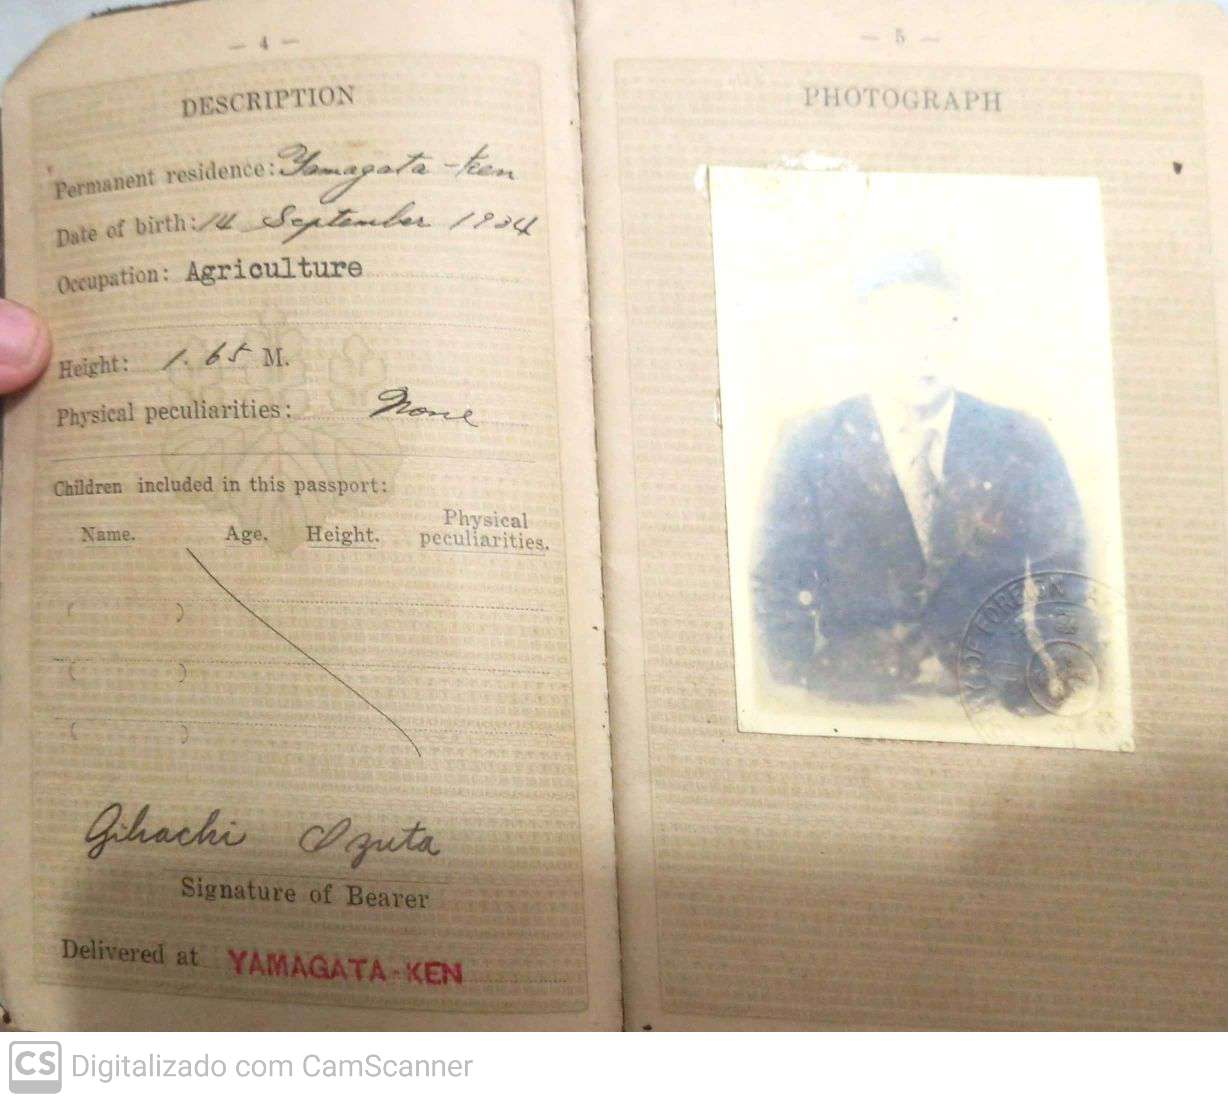 — 4 —
DESCRIPTION
Permanent residence: Yamagata-ken
Date of birth: 14 September 1934
Occupation: Agriculture
Height: 1.65 M.
Physical peculiarities: None
Children included in this passport:
Name. Age. Height. Physical peculiarities.
( )
( )
( )
Gihachi Ozuta
Signature of Bearer
Delivered at YAMAGATA-KEN
— 5 —
PHOTOGRAPH
OF FOREIGN
CS Digitalizado com CamScanner